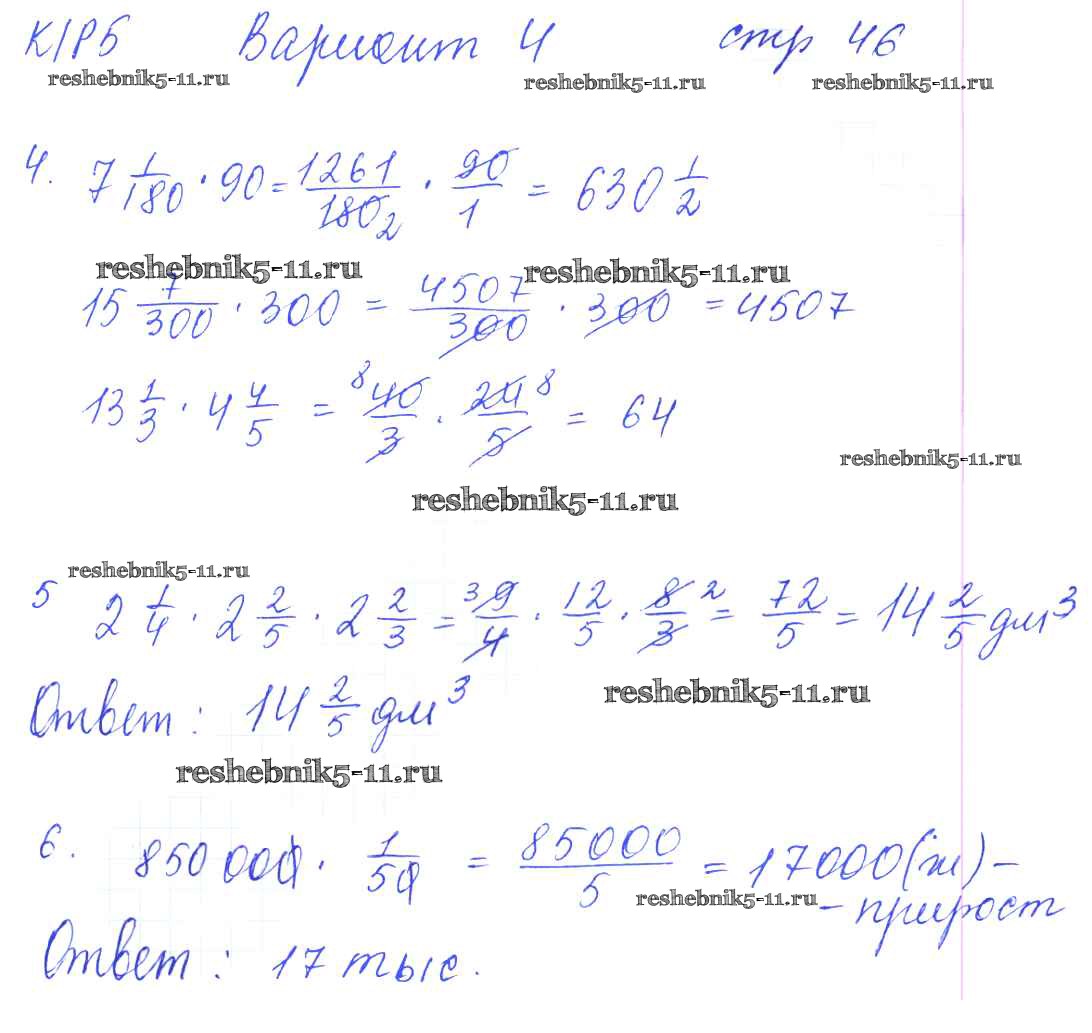 К/Р6 Вариант 4 стр 46
reshebnik5-11.ru reshebnik5-11.ru reshebnik5-11.ru
4. 7 1/180 · 90 = 1261/180 2 · 90/1 = 630 1/2
reshebnik5-11.ru reshebnik5-11.ru
15 7/300 · 300 = 4507/300 · 300 = 4507
13 1/3 · 4 4/5 = 8 40/3 · 24 8/5 = 64
reshebnik5-11.ru
reshebnik5-11.ru
reshebnik5-11.ru
5 2 1/4 · 2 2/5 · 2 2/3 = 3 9/4 · 12/5 · 8/3 2 = 72/5 = 14 2/5 дм³
reshebnik5-11.ru
Ответ: 14 2/5 дм³
reshebnik5-11.ru
6. 850 000 · 1/50 = 85000/5 = 17000 (ж) –
reshebnik5-11.ru
– прирост
Ответ: 17 тыс.